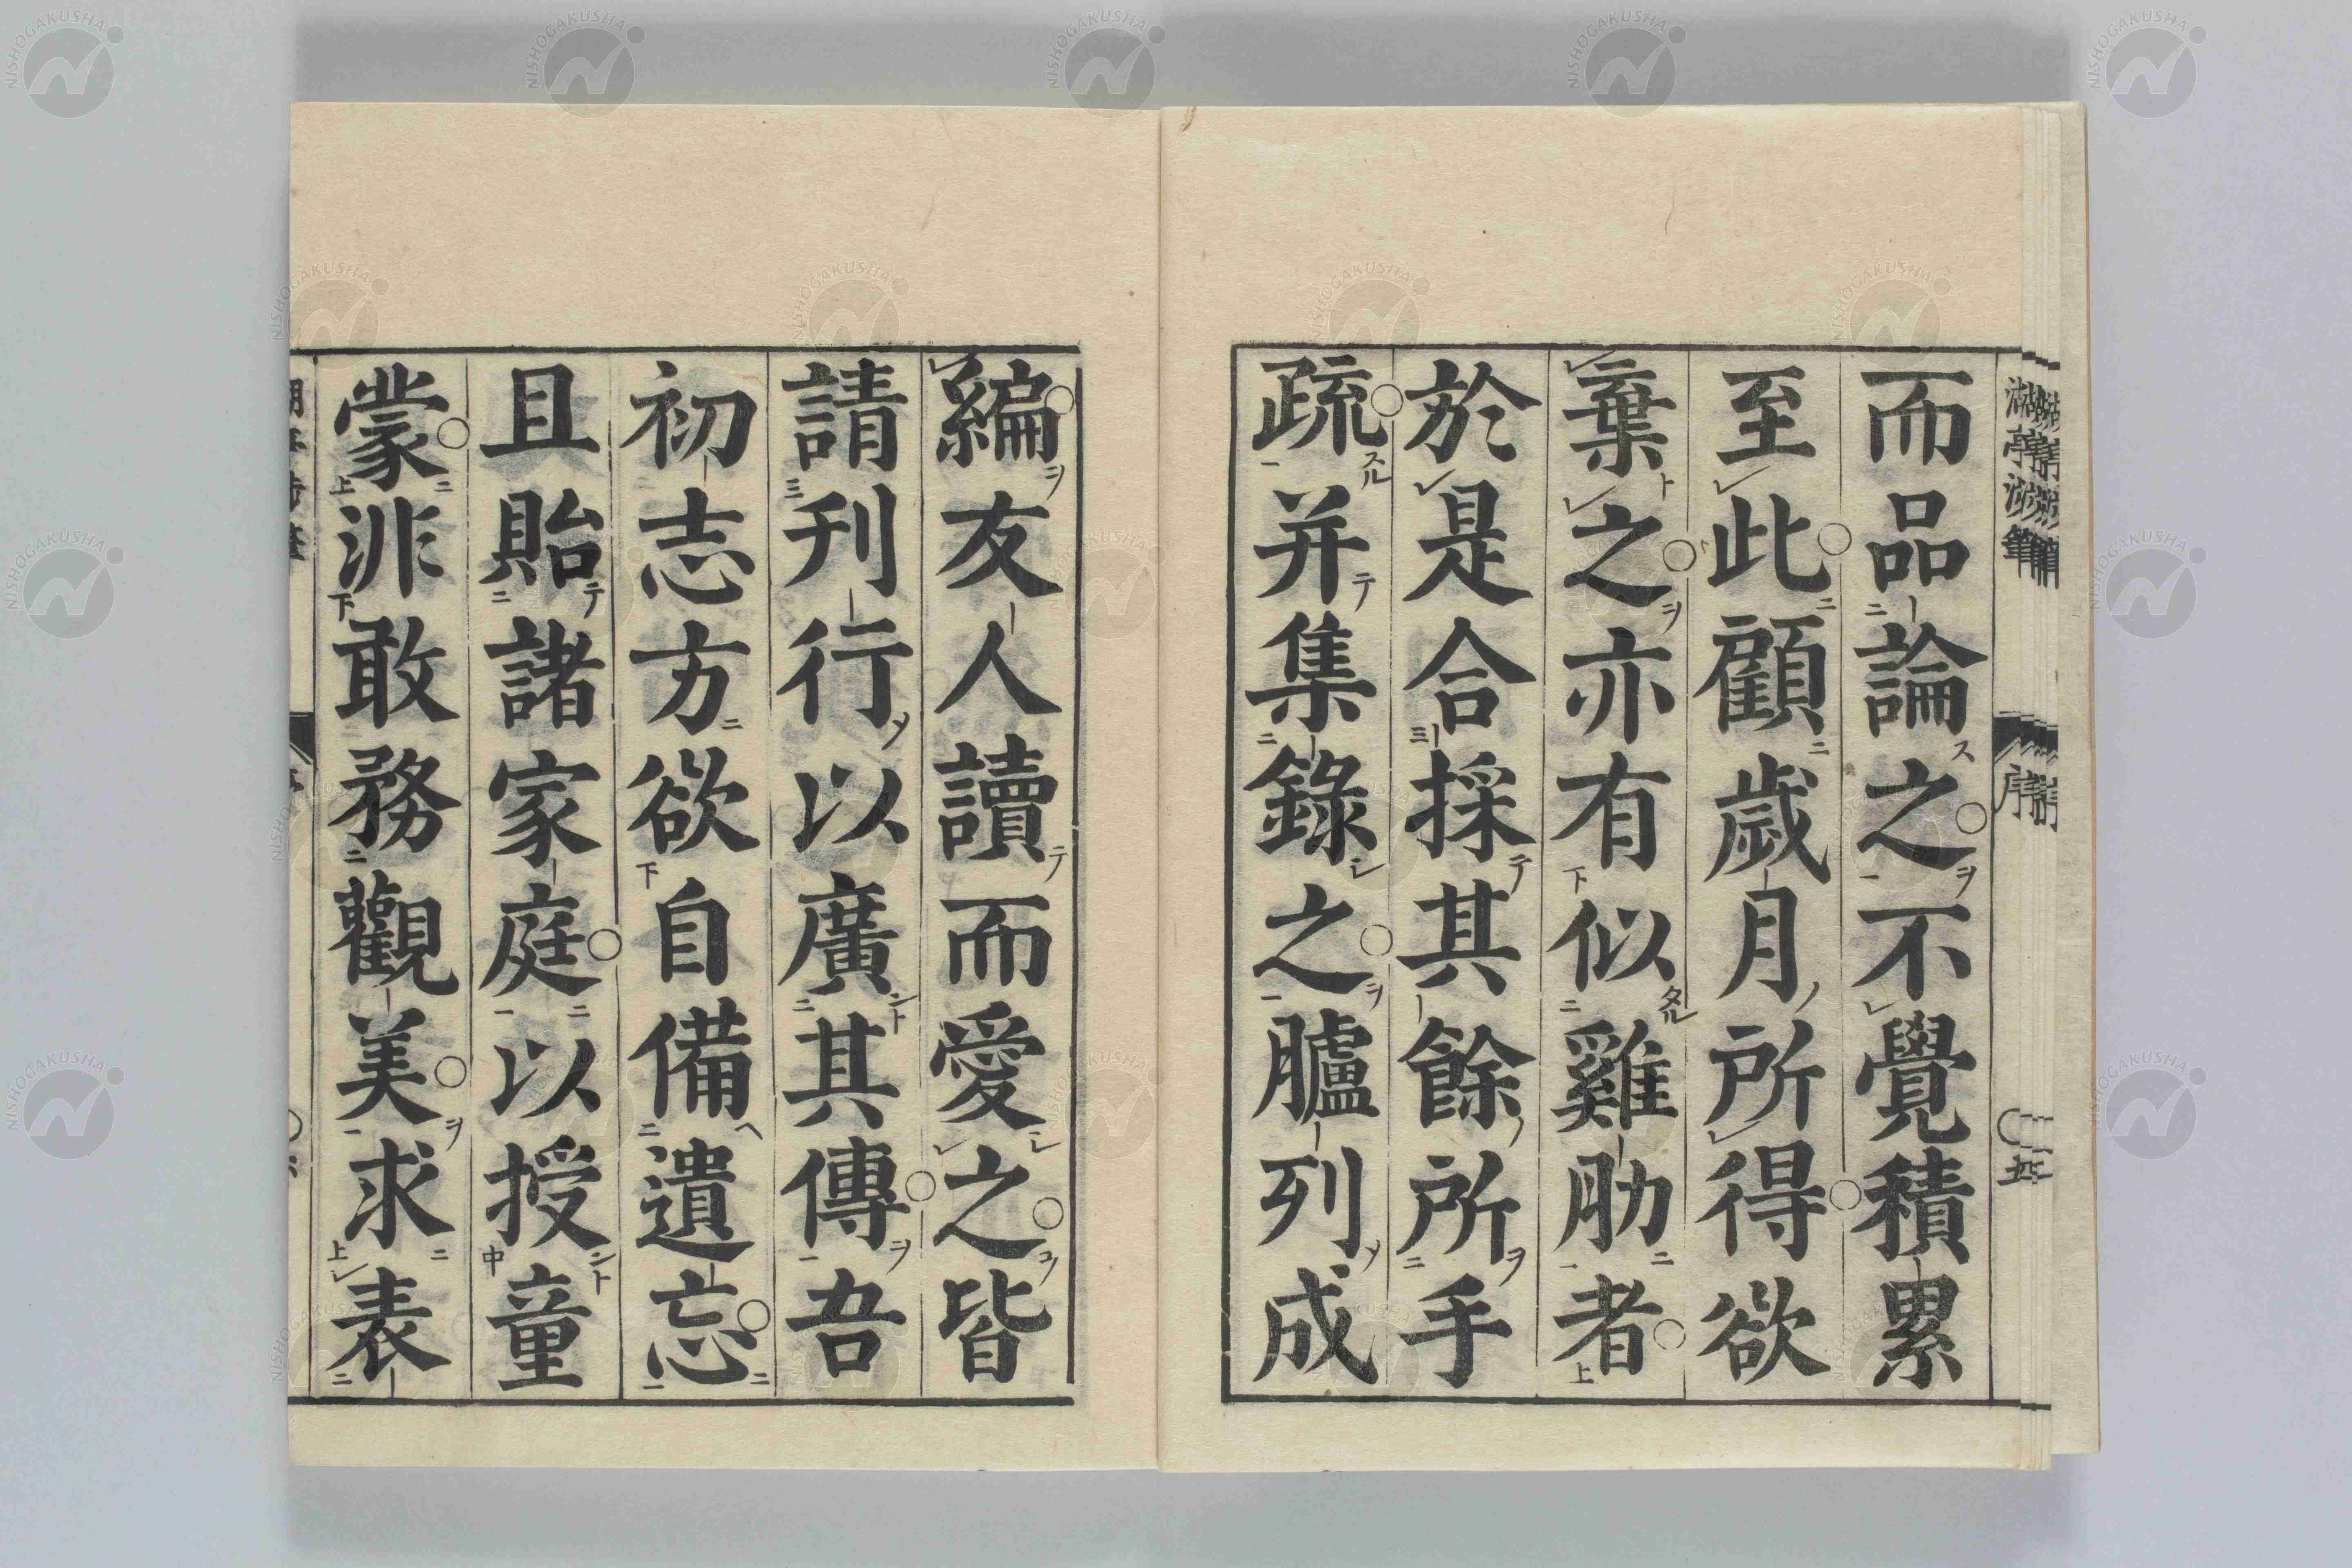 而品論之不覺積累
至此顧歲月所得欲
棄之亦有似雞肋者
於是合採其餘所手
疏并集錄之臚列成
編友人讀而愛之皆
請刊行以廣其傳吾
初志方欲自備遺忘
且貽諸家庭以授童
蒙非敢務觀美求表